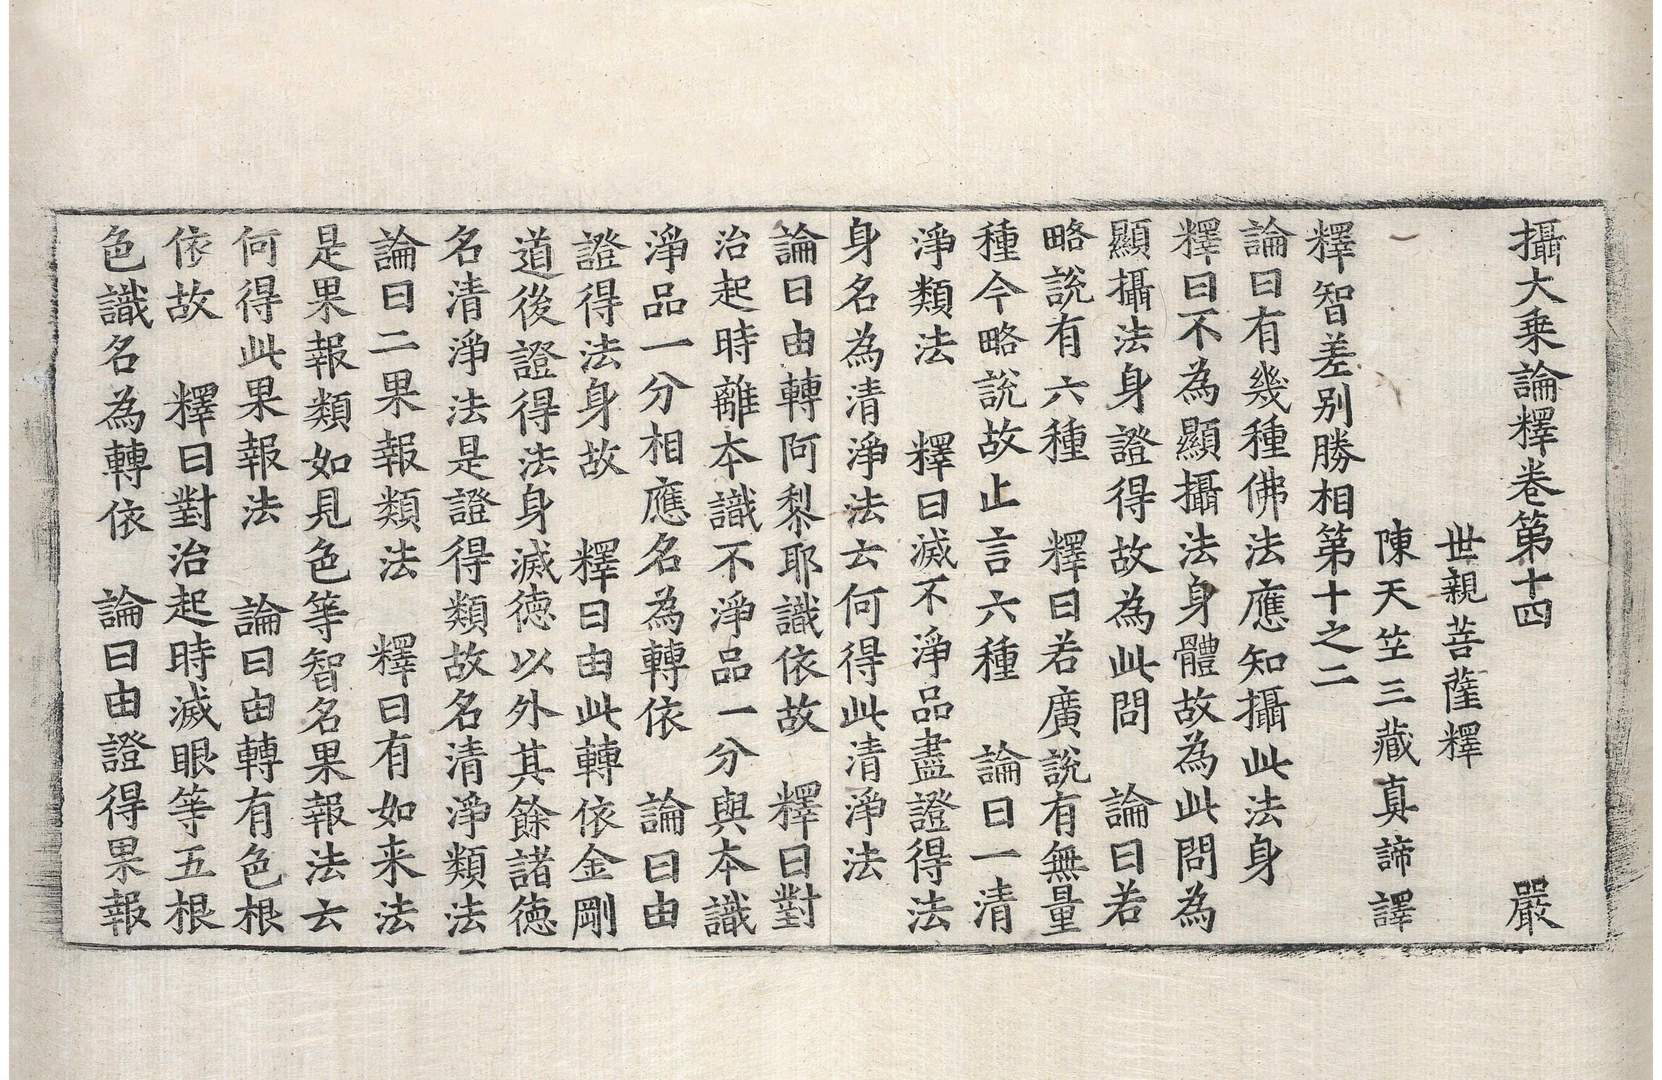 攝大乗論釋卷第十四 嚴
世親菩薩釋
陳天竺三藏真諦譯
釋智差別勝相第十之二
論曰有幾種佛法應知攝此法身
釋曰不為顯攝法身體故為此問為
顯攝法身證得故為此問 論曰若
略說有六種 釋曰若廣說有無量
種今略說故止言六種 論曰一清
淨類法 釋曰滅不淨品盡證得法
身名為清淨法云何得此清淨法
論曰由轉阿梨耶識依故 釋曰對
治起時離本識不淨品一分與本識
淨品一分相應名為轉依 論曰由
證得法身故 釋曰由此轉依金剛
道後證得法身滅德以外其餘諸德
名清淨法是證得類故名清淨類法
論曰二果報類法 釋曰有如来法
是果報類如見色等智名果報法云
何得此果報法 論曰由轉有色根
依故 釋曰對治起時滅眼等五根
色識名為轉依 論曰由證得果報